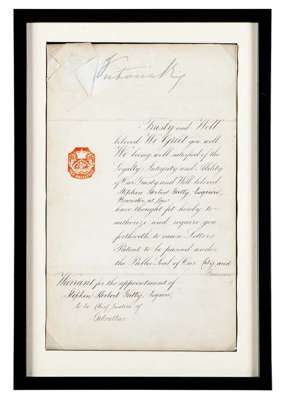 Victoria R
Trusty and Well
beloved We Greet you well.
We being well satisfied of the
Loyalty, Integrity and Ability
of Our Trusty and Well beloved
Stephen Herbert Gatty, Esquire,
Barrister at Law
have thought fit hereby to
authorize and require you
forthwith to cause Letters
Patent to be passed under
the Public Seal of Our City and
Warrant for the appointment of
Stephen Herbert Gatty, Esquire,
to be Chief Justice of
Gibraltar.